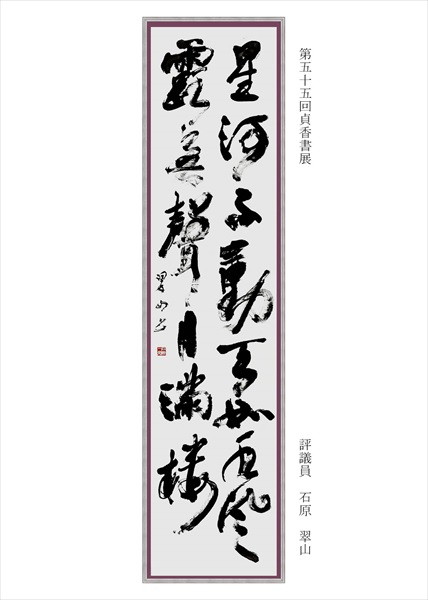 第五十五回貞香書展
星河不動天如水風
露無聲月滿樓
翠山書
評議員 石原 翠山